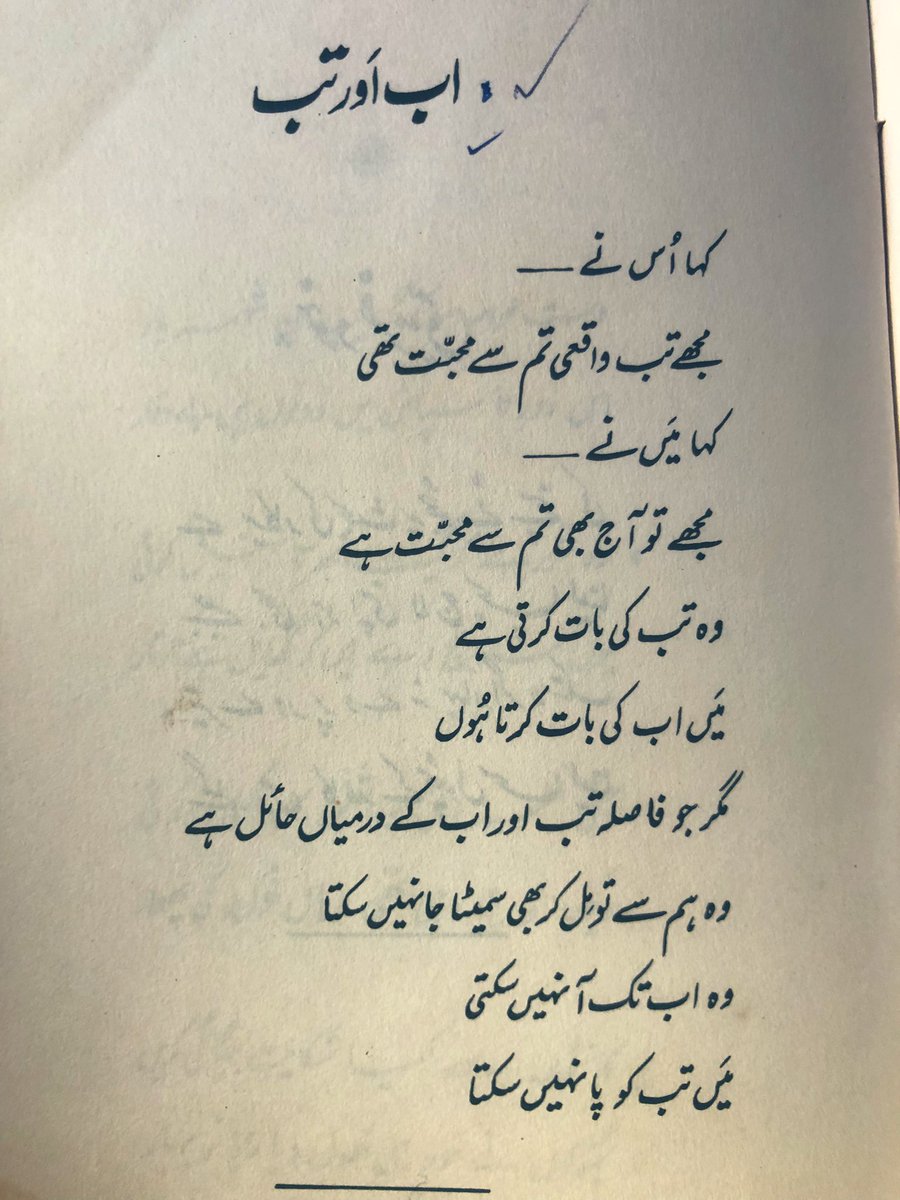 اب اَور تب
کہا اُس نے ——
مجھے تب واقعی تم سے محبّت تھی
کہا مَیں نے ——
مجھے تو آج بھی تم سے محبّت ہے
وہ تب کی بات کرتی ہے
مَیں اب کی بات کرتا ہُوں
مگر جو فاصلہ تب اور اب کے درمیاں حائل ہے
وہ ہم سے تو مِل کر بھی سمیٹا جا نہیں سکتا
وہ اب تک آ نہیں سکتی
مَیں تب کو پا نہیں سکتا